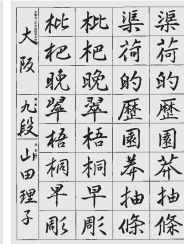 渠荷的歷園莽抽條
渠荷的歷園莽抽條
枇杷晚翠梧桐早彫
枇杷晚翠梧桐早彫
大阪 九段 山田理子